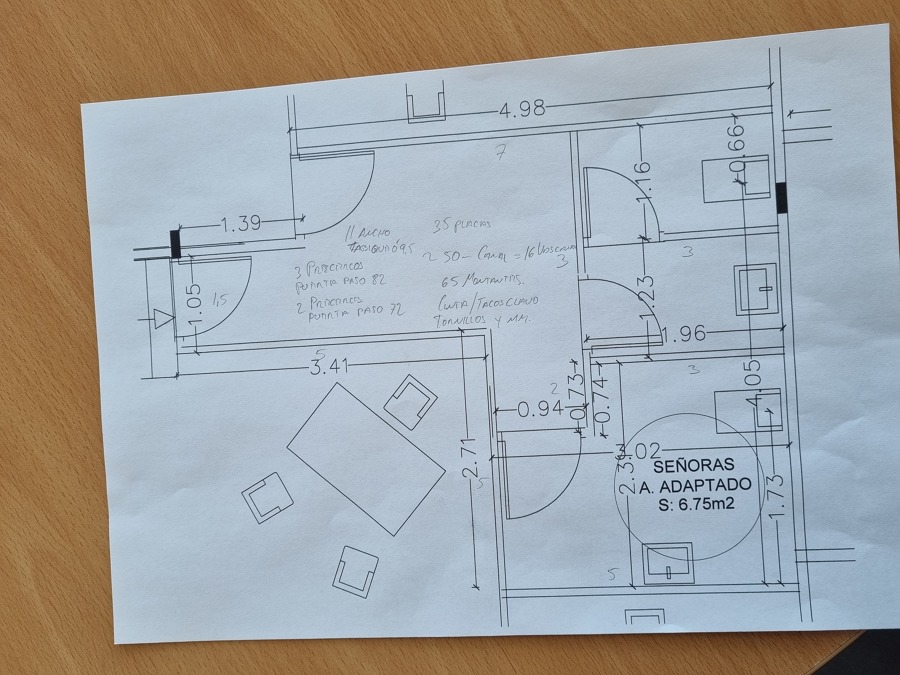 4.98
7
0.66
1.16
1.39
11 ANCHO
35 PLACAS
3
2 50 - CANAL = 16
3
3 PREMARCOS
PUERTA PASO 82
65 MONTANTES.
1.05
1,5
2 PREMARCOS
PUERTA PASO 72
CINTA/TACOS CLAVO
TORNILLOS Y MM.
1.23
1.96
5
3.41
3
4.05
2
0.73
0.74
0.94
2.71
5
3.02
SEÑORAS
A. ADAPTADO
S: 6.75m2
1.73
5